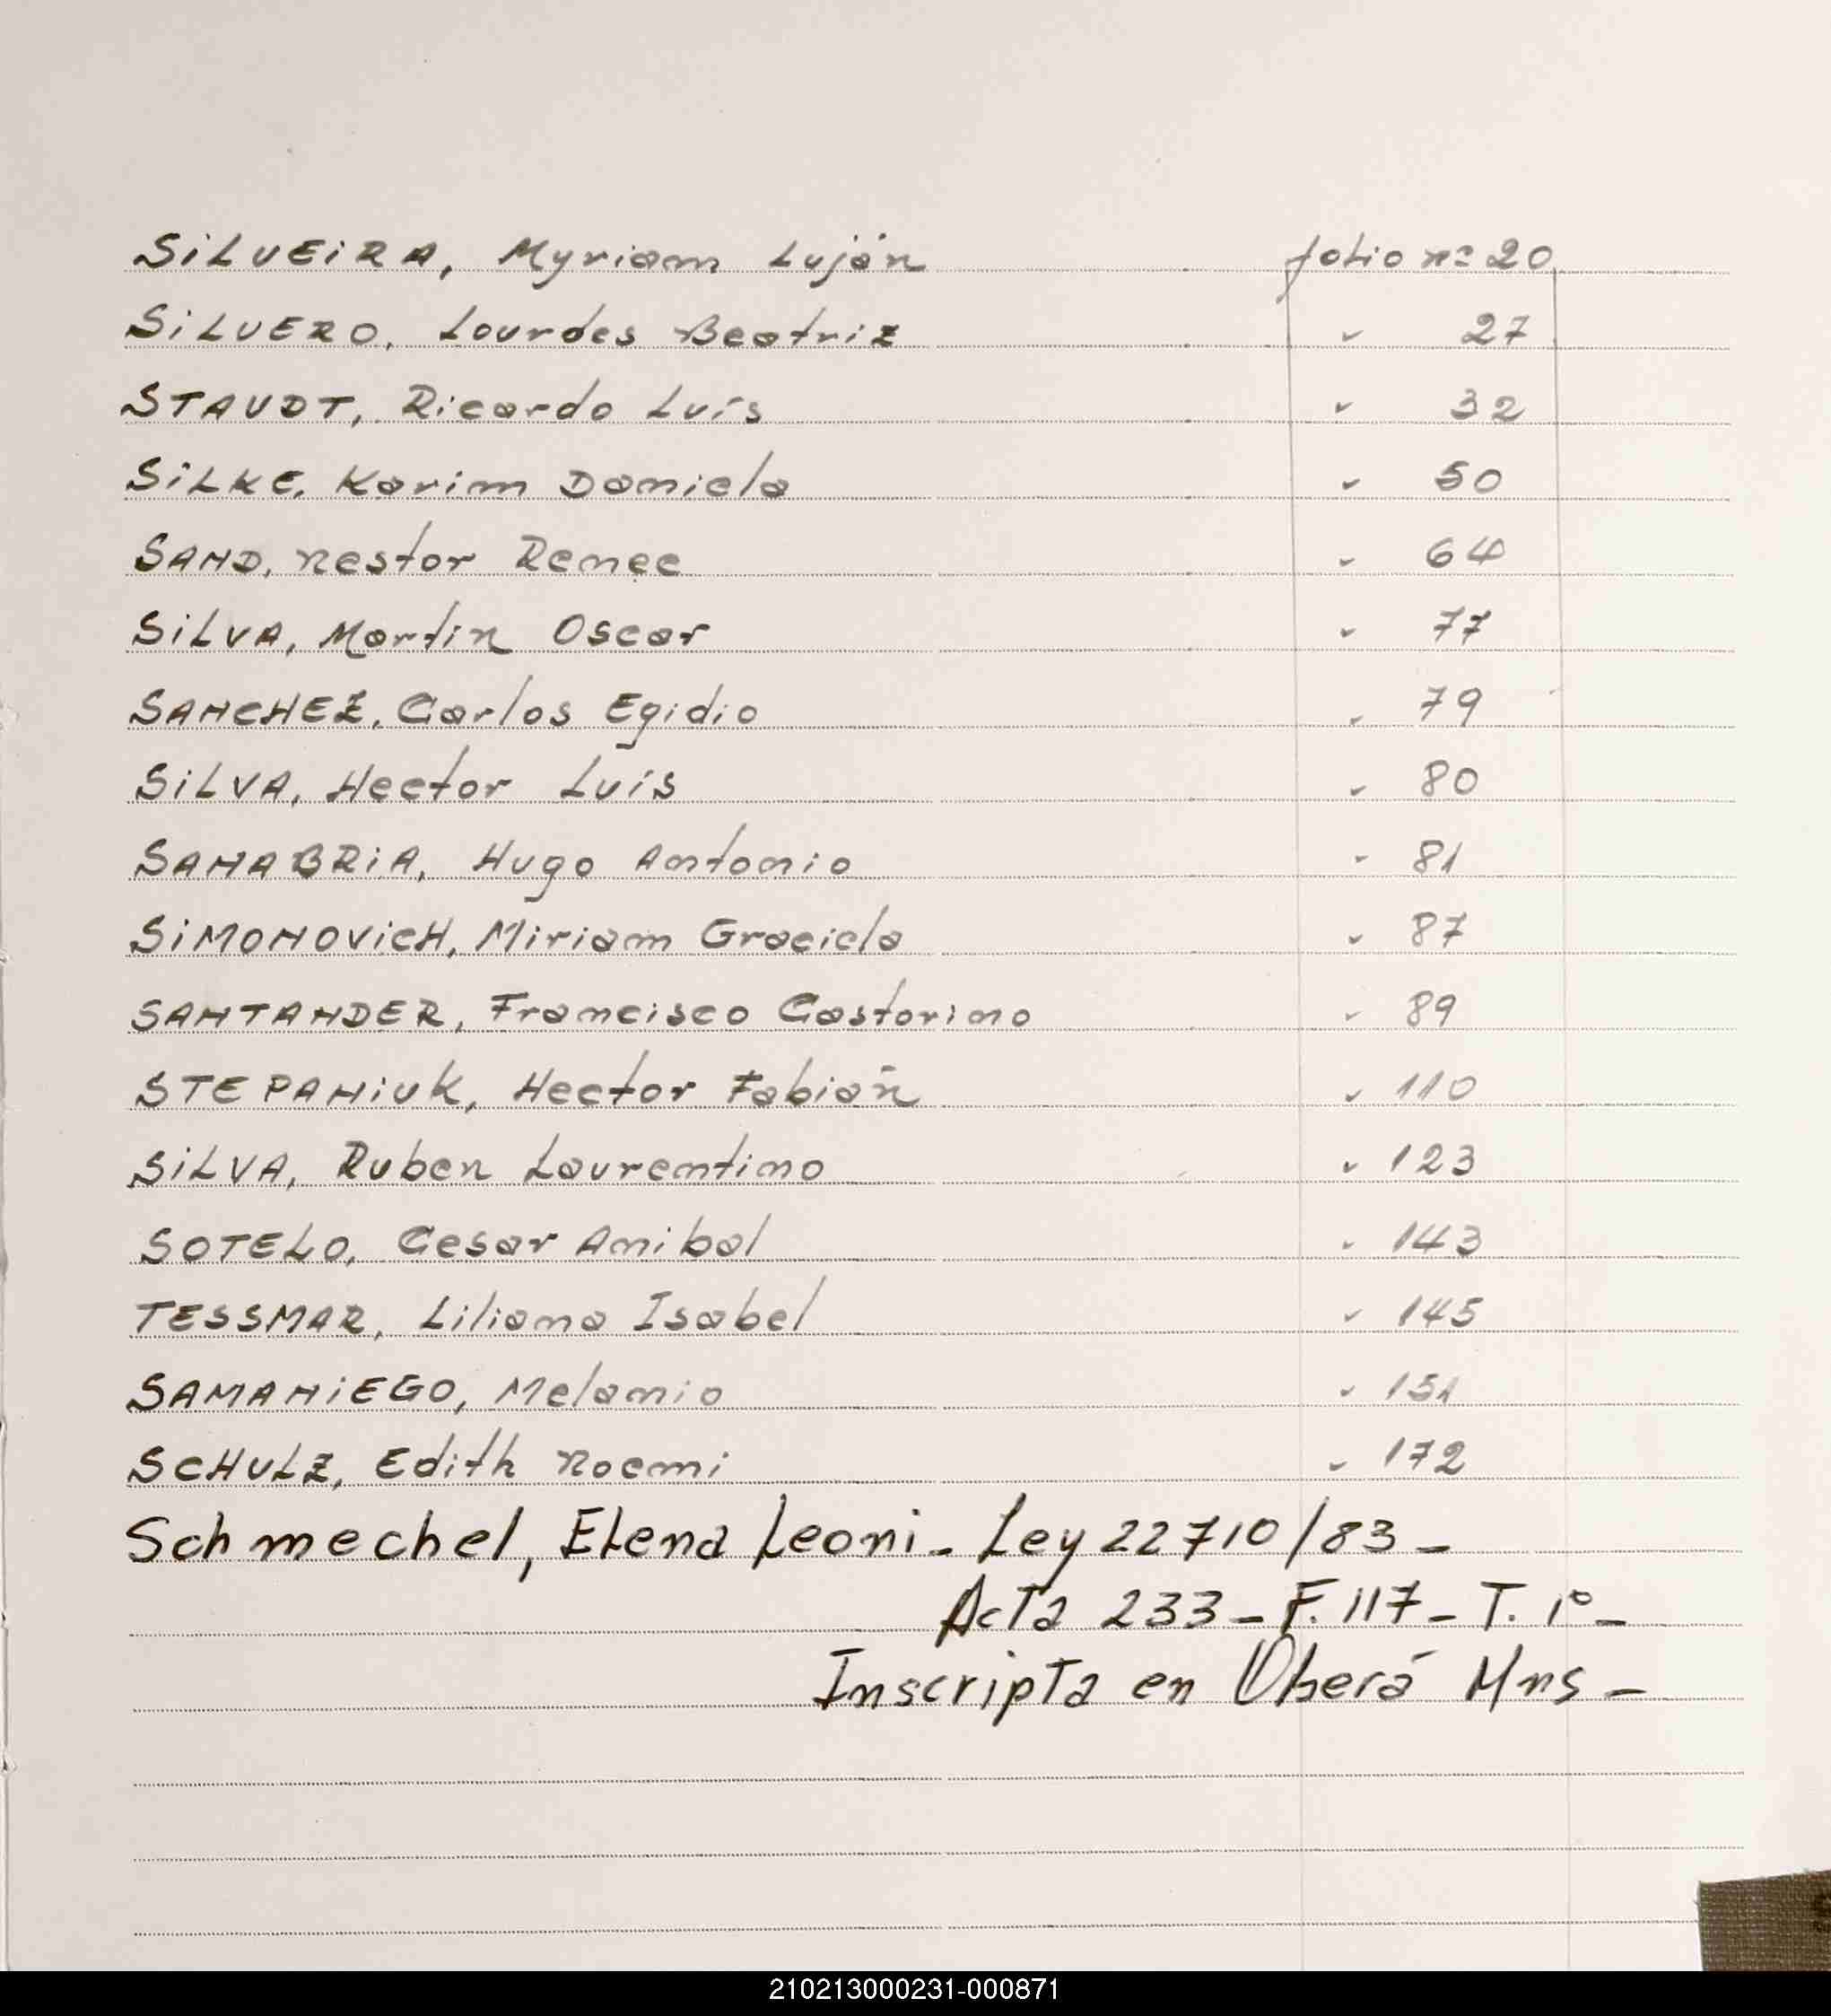 SiLVEiRA, Myriam Luján folio nº 20
SiLVERO, Lourdes Beatriz " 27
STAUDT, Ricardo Luís " 32
SiLKE, Karim Daniela " 50
SAND, Nestor Renee " 64
SiLVA, Martin Oscar " 77
SANCHEZ, Carlos Egidio " 79
SiLVA, Hector Luís " 80
SANABRiA, Hugo Antonio " 81
SiMONOViCH, Miriam Graciela " 87
SANTANDER, Francisco Castorino " 89
STEPANiUK, Hector Fabián " 110
SiLVA, Ruben Laurentino " 123
SOTELO, Cesar Anibal " 143
TESSMAR, Liliana Isabel " 145
SAMANiEGO, Melanio " 151
SCHULZ, Edith Noemi " 172
Schmechel, Elena Leoni - Ley 22710/83 -
Acta 233 - F. 117 - T. 1º -
Inscripta en Oberá Mns -
210213000231-000871